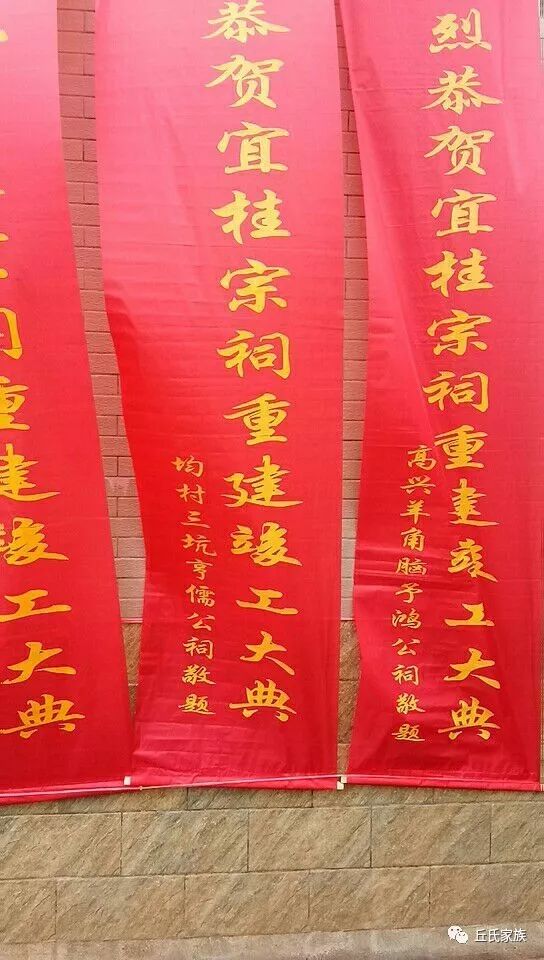 烈恭贺宜桂宗祠重建竣工大典
高兴羊角脑子鸿公祠敬题
恭贺宜桂宗祠重建竣工大典
均村三坑亨儒公祠敬题
祠重建竣工大典
丘氏家族